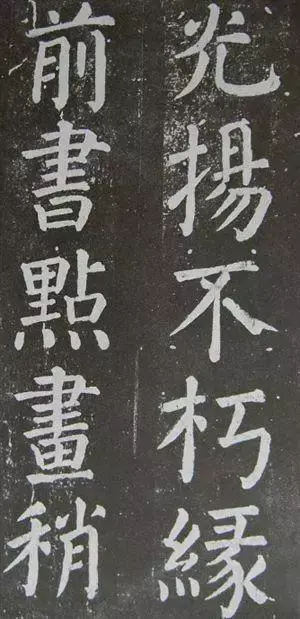 光揚不朽縁
前書點畫稍